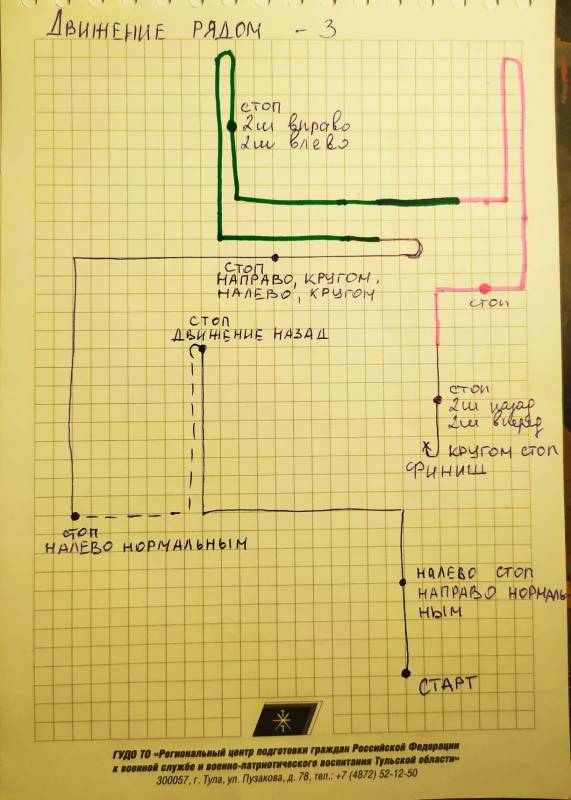 ДВИЖЕНИЕ РЯДОМ - 3
СТОП
2ш вправо
2ш влево
СТОП
НАПРАВО, КРУГОМ,
НАЛЕВО, КРУГОМ
СТОП
ДВИЖЕНИЕ НАЗАД
СТОП
СТОП
2ш назад
2ш вперед
КРУГОМ СТОП
ФИНИШ
СТОП
НАЛЕВО НОРМАЛЬНЫМ
НАЛЕВО СТОП
НАПРАВО НОРМАЛЬ-
НЫМ
СТАРТ
ГУДО ТО «Региональный центр подготовки граждан Российской Федерации
к военной службе и военно-патриотического воспитания Тульской области»
300057, г. Тула, ул. Пузакова, д. 78, тел.: +7 (4872) 52-12-50